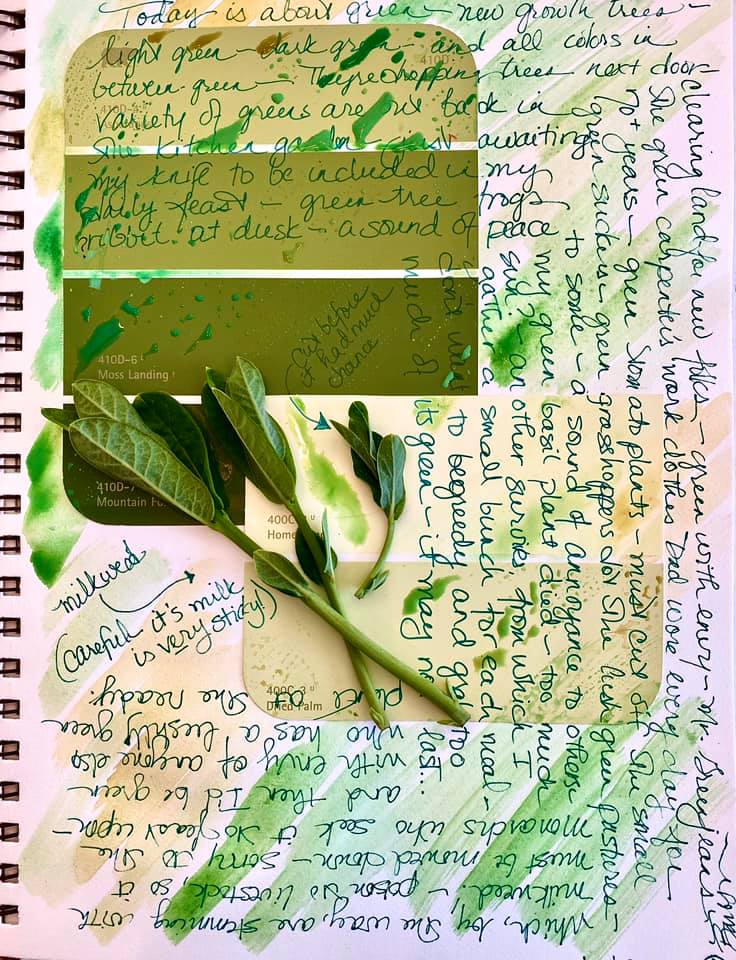 Today is about green — new growth trees —
light green — dark green — and all colors in
between green — They're chopping trees next door
variety of greens are out back in
the kitchen garden — just awaiting
my knife to be included in my
daily feast — green tree frogs
ribbit at dusk — a sound of peace
clearing land for new folks — green with envy — Mr. Greenjeans
the green carpenter's work clothes Dad wore every day for
70+ years — green tomato plants — must cut off the small
green suckers — green grasshoppers dot the lush green pastures —
which, by the way, are stemming with
milkweed! — poison to livestock, so it
must be mowed down — sorry to the
monarchs who seek it to feast upon —
to some — a sound of annoyance to others
my green basil plant died — too much
sun? another survives from which I
gather a small bunch for each meal —
Don't want to be greedy and grab too
much of its green — it may not last...
and then I'd be green
with envy of anyone else
who has a lushly green
plant at the ready.
cut before
it had much
chance
milkweed
(careful it's milk
is very sticky!)
410D-6
Moss Landing
410D-7
Mountain Fo
400C
Home
400C-3
Dried Palm